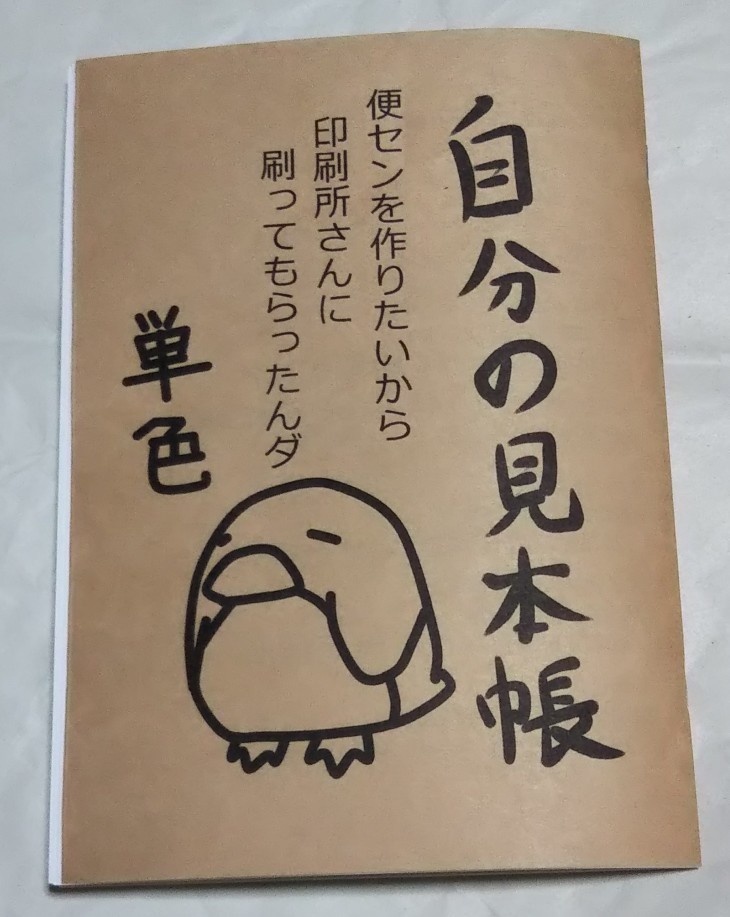 自分の見本帳
便センを作りたいから
印刷所さんに
刷ってもらったんダ
単色